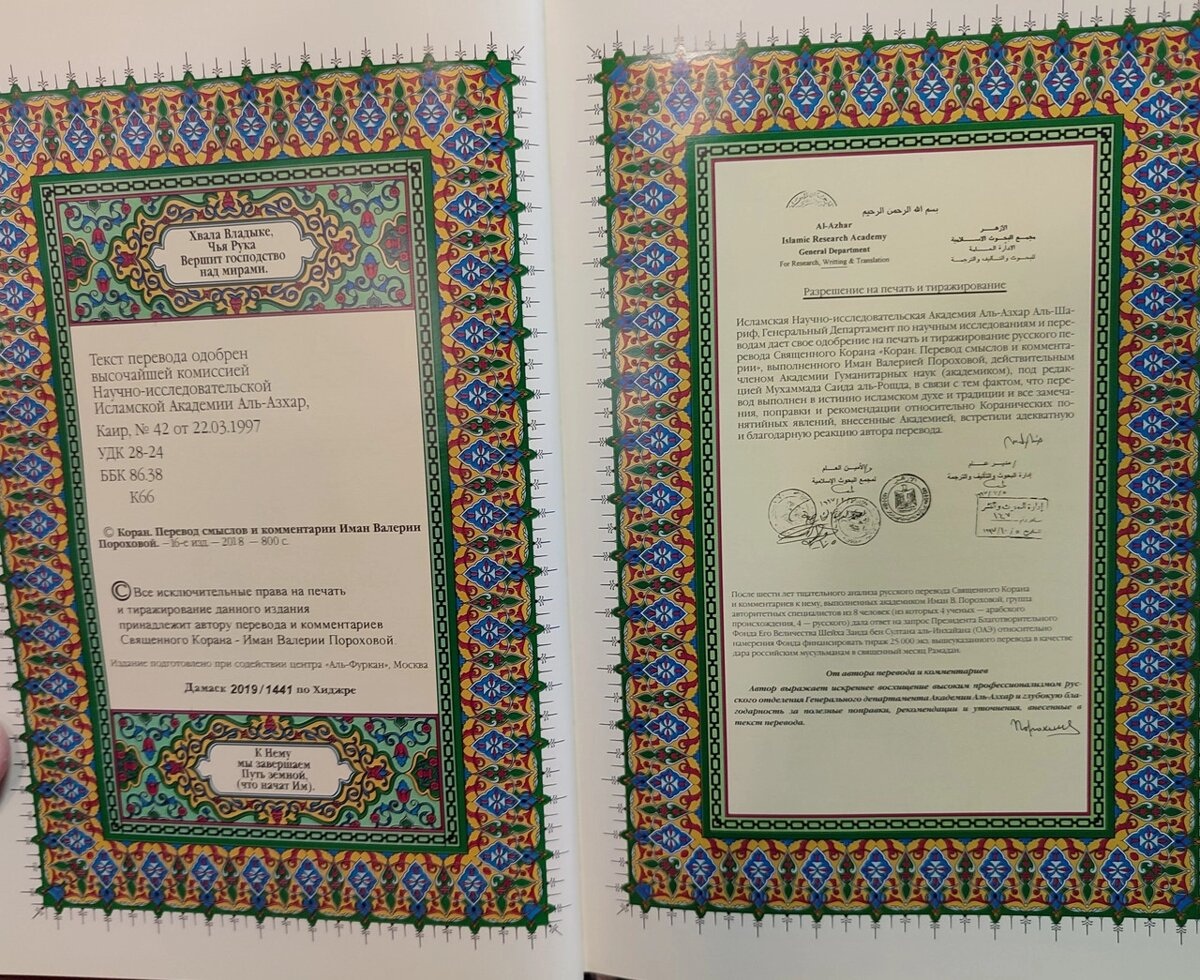 Хвала Владыке,
Чья Рука
Вершит господство
над мирами.
Текст перевода одобрен
высочайшей комиссией
Научно-исследовательской
Исламской Академии Аль-Азхар,
Каир, № 42 от 22.03.1997
УДК 28-24
ББК 86.38
К66
© Коран. Перевод смыслов и комментарии Иман Валерии
Пороховой. – 16-е изд. — 2018 — 800 с.
© Все исключительные права на печать
и тиражирование данного издания
принадлежит автору перевода и комментариев
Священного Корана - Иман Валерии Пороховой.
Издание подготовлено при содействии центра «Аль-Фуркан», Москва
Дамаск 2019/1441 по Хиджре
К Нему
мы завершаем
Путь земной,
(что начат Им).
بسم الله الرحمن الرحيم
Al-Azhar
Islamic Research Academy
General Department
For Research, Writing & Translation
الأزهر
مجمع البحوث الإسلامية
الادارة العامة
للبحوث والتأليف والترجمة
Разрешение на печать и тиражирование
Исламская Научно-исследовательская Академия Аль-Азхар Аль-Ша-
риф, Генеральный Департамент по научным исследованиям и пере-
водам дает свое одобрение на печать и тиражирование русского пе-
ревода Священного Корана «Коран. Перевод смыслов и коммента-
рии», выполненного Иман Валерией Пороховой, действительным
членом Академии Гуманитарных наук (академиком), под редак-
цией Мухаммада Саида аль-Рошда, в связи с тем фактом, что пере-
вод выполнен в истинно исламском духе и традиции и все замеча-
ния, поправки и рекомендации относительно Коранических по-
нятийных явлений, внесенные Академией, встретили адекватную
и благодарную реакцию автора перевода.
والأمين العام
لمجمع البحوث الإسلامية
مدير عام
إدارة البحوث والتأليف والترجمة
После шести лет тщательного анализа русского перевода Священного Корана
и комментариев к нему, выполненных академиком Иман В. Пороховой, группа
авторитетных специалистов из 8 человек (из которых 4 ученых — арабского
происхождения, 4 — русского) дала ответ на запрос Президента Благотворительного
Фонда Его Величества Шейха Заида бен Султана аль-Инхайана (ОАЭ) относительно
намерения Фонда финансировать тираж 25 000 экз. вышеуказанного перевода в качестве
дара российским мусульманам в священный месяц Рамадан.
От автора перевода и комментариев
Автор выражает искреннее восхищение высоким профессионализмом рус-
ского отделения Генерального департамента Академии Аль-Азхар и глубокую бла-
годарность за полезные поправки, рекомендации и уточнения, внесенные в
текст перевода.